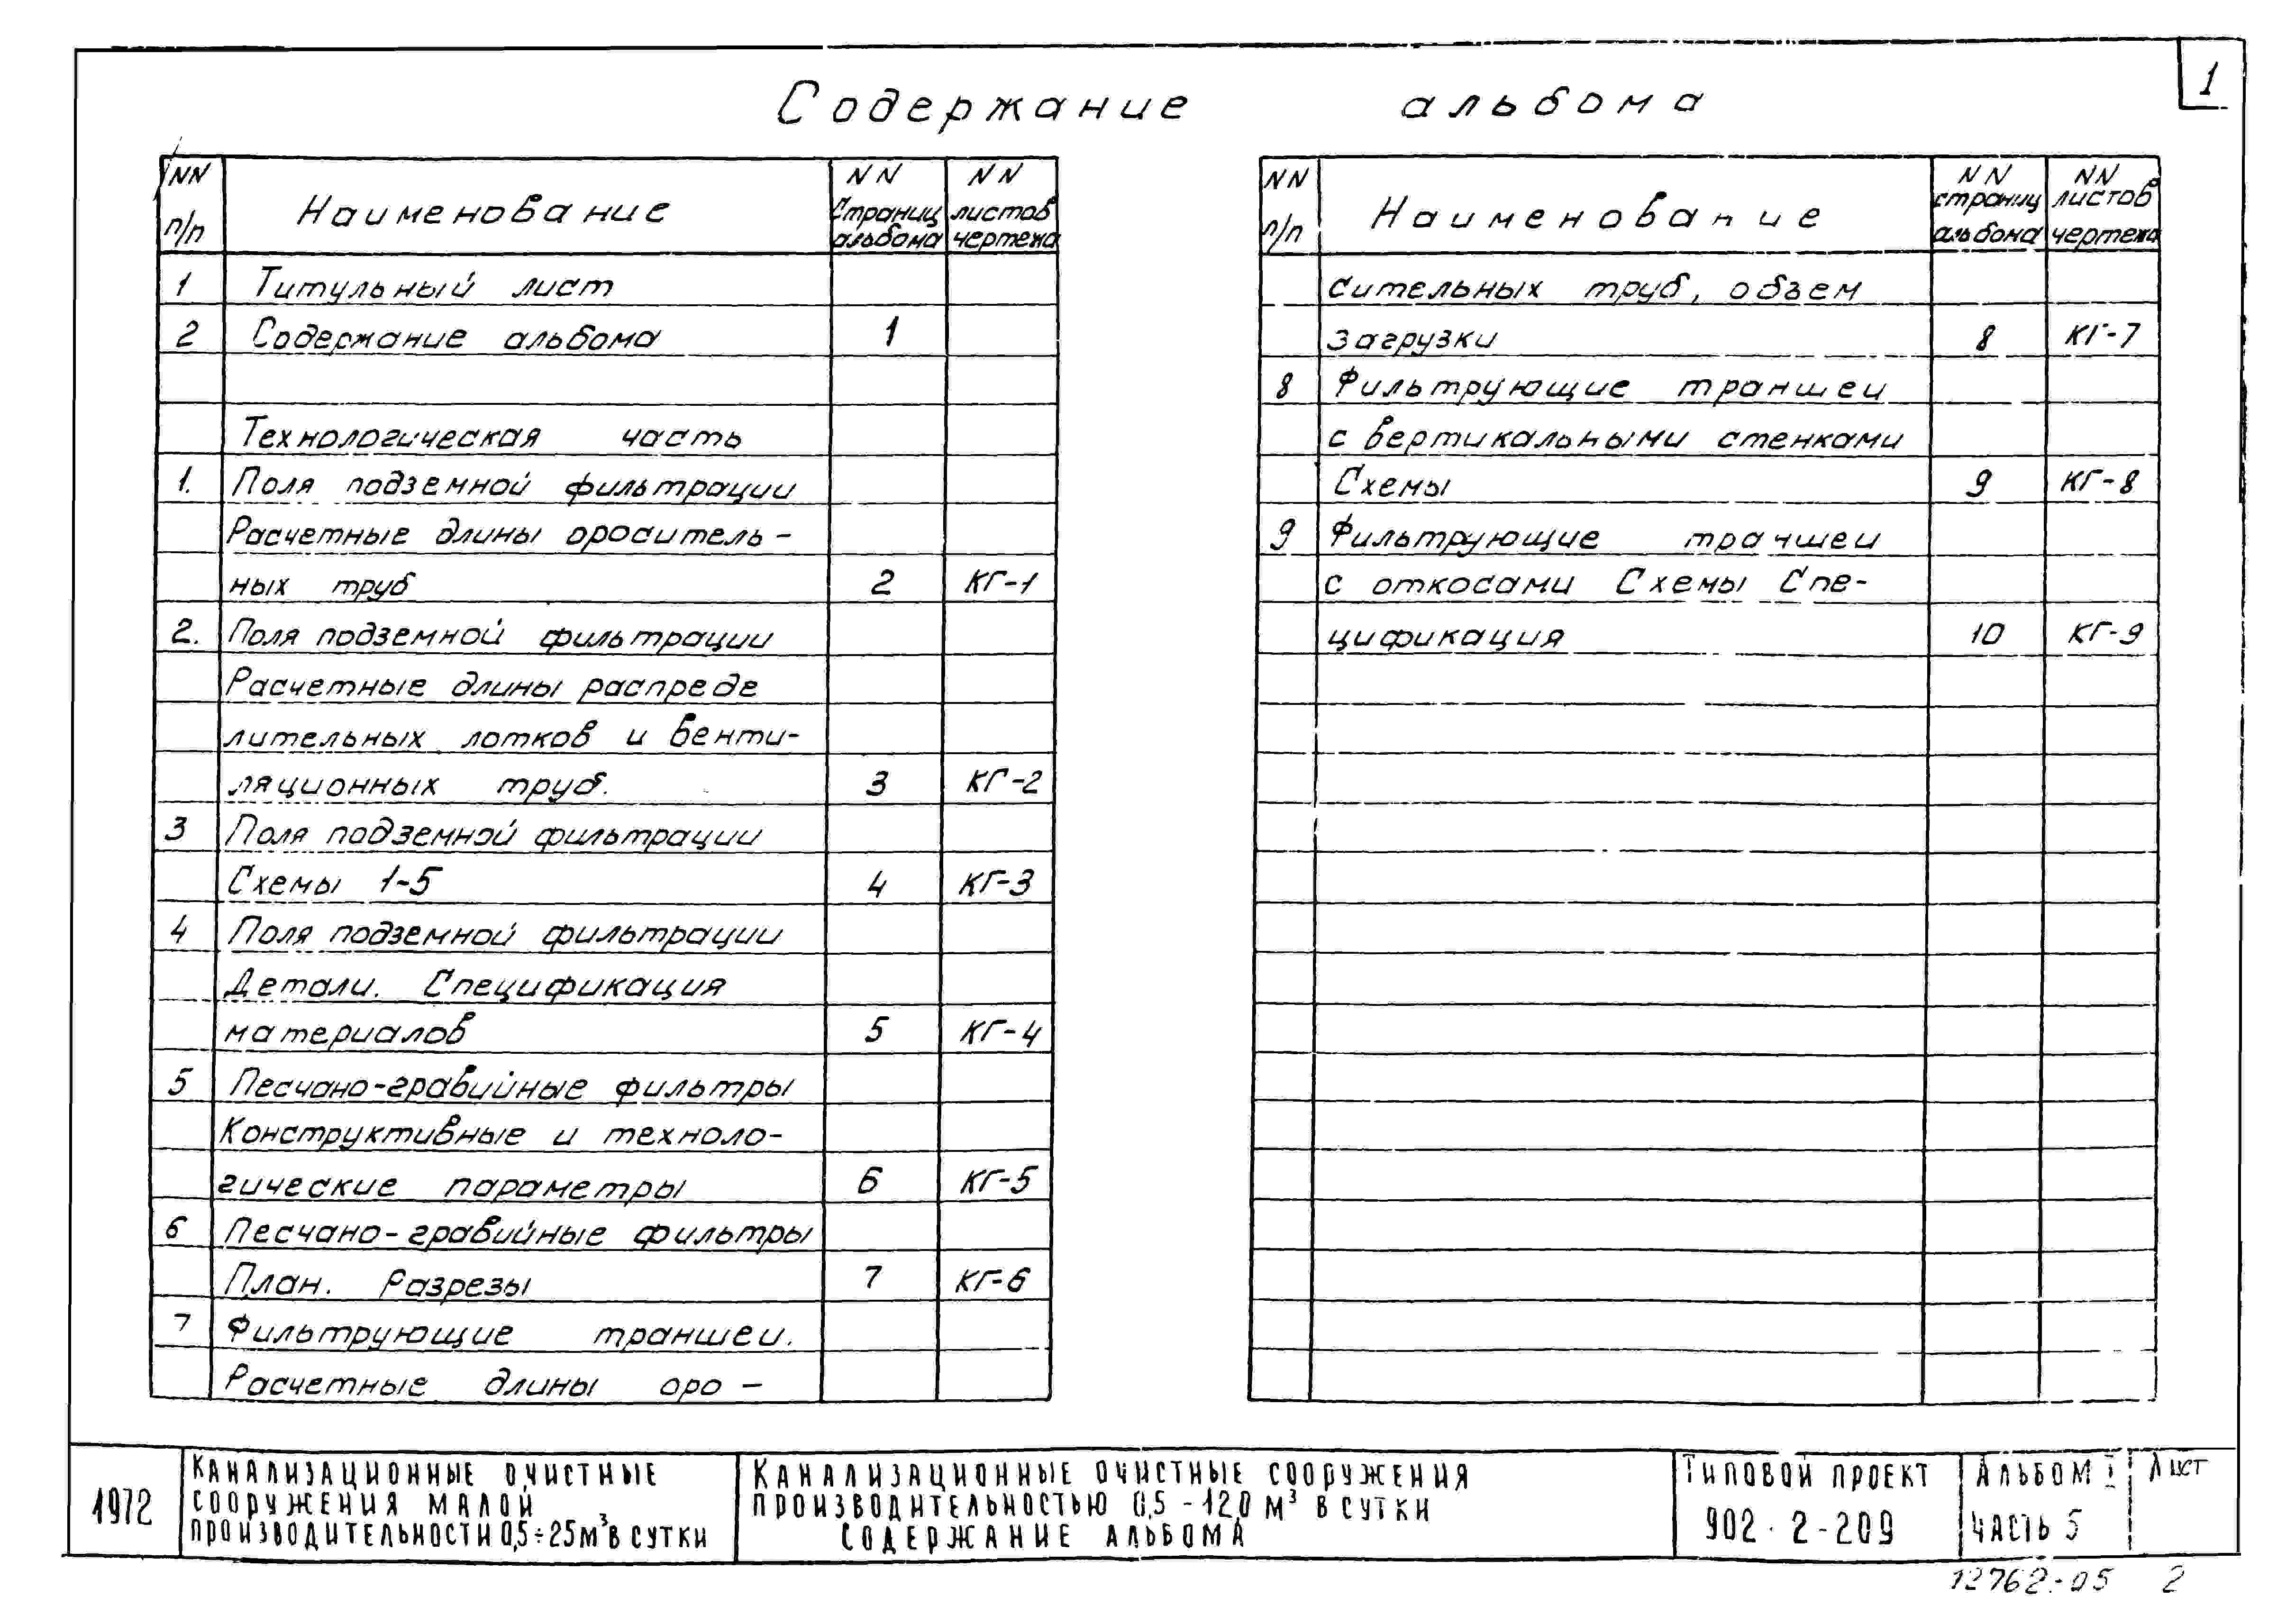 1
Содержание альбома
NN п/п Наименование NN страниц альбома NN листов чертежа
1 Титульный лист
2 Содержание альбома 1
Технологическая часть
1. Поля подземной фильтрации
Расчетные длины ороситель-
ных труб 2 КГ-1
2. Поля подземной фильтрации
Расчетные длины распреде
лительных лотков и венти-
ляционных труб. 3 КГ-2
3 Поля подземной фильтрации
Схемы 1-5 4 КГ-3
4 Поля подземной фильтрации
Детали. Спецификация
материалов 5 КГ-4
5 Песчано-гравийные фильтры
Конструктивные и техноло-
гические параметры 6 КГ-5
6 Песчано-гравийные фильтры
План. Разрезы 7 КГ-6
7 Фильтрующие траншеи.
Расчетные длины оро-
NN п/п Наименование NN страниц альбома NN листов чертежа
сительных труб, объем
загрузки 8 КГ-7
8 Фильтрующие траншеи
с вертикальными стенками
Схемы 9 КГ-8
9 Фильтрующие траншеи
с откосами Схемы Спе-
цификация 10 КГ-9
1972
КАНАЛИЗАЦИОННЫЕ ОЧИСТНЫЕ
СООРУЖЕНИЯ МАЛОЙ
ПРОИЗВОДИТЕЛЬНОСТИ 0,5÷25м³ В СУТКИ
КАНАЛИЗАЦИОННЫЕ ОЧИСТНЫЕ СООРУЖЕНИЯ
ПРОИЗВОДИТЕЛЬНОСТЬЮ 0,5-12,0 м³ В СУТКИ
СОДЕРЖАНИЕ АЛЬБОМА
ТИПОВОЙ ПРОЕКТ
902-2-209
АЛЬБОМ I
ЧАСТЬ 5
ЛИСТ
12762-05 2